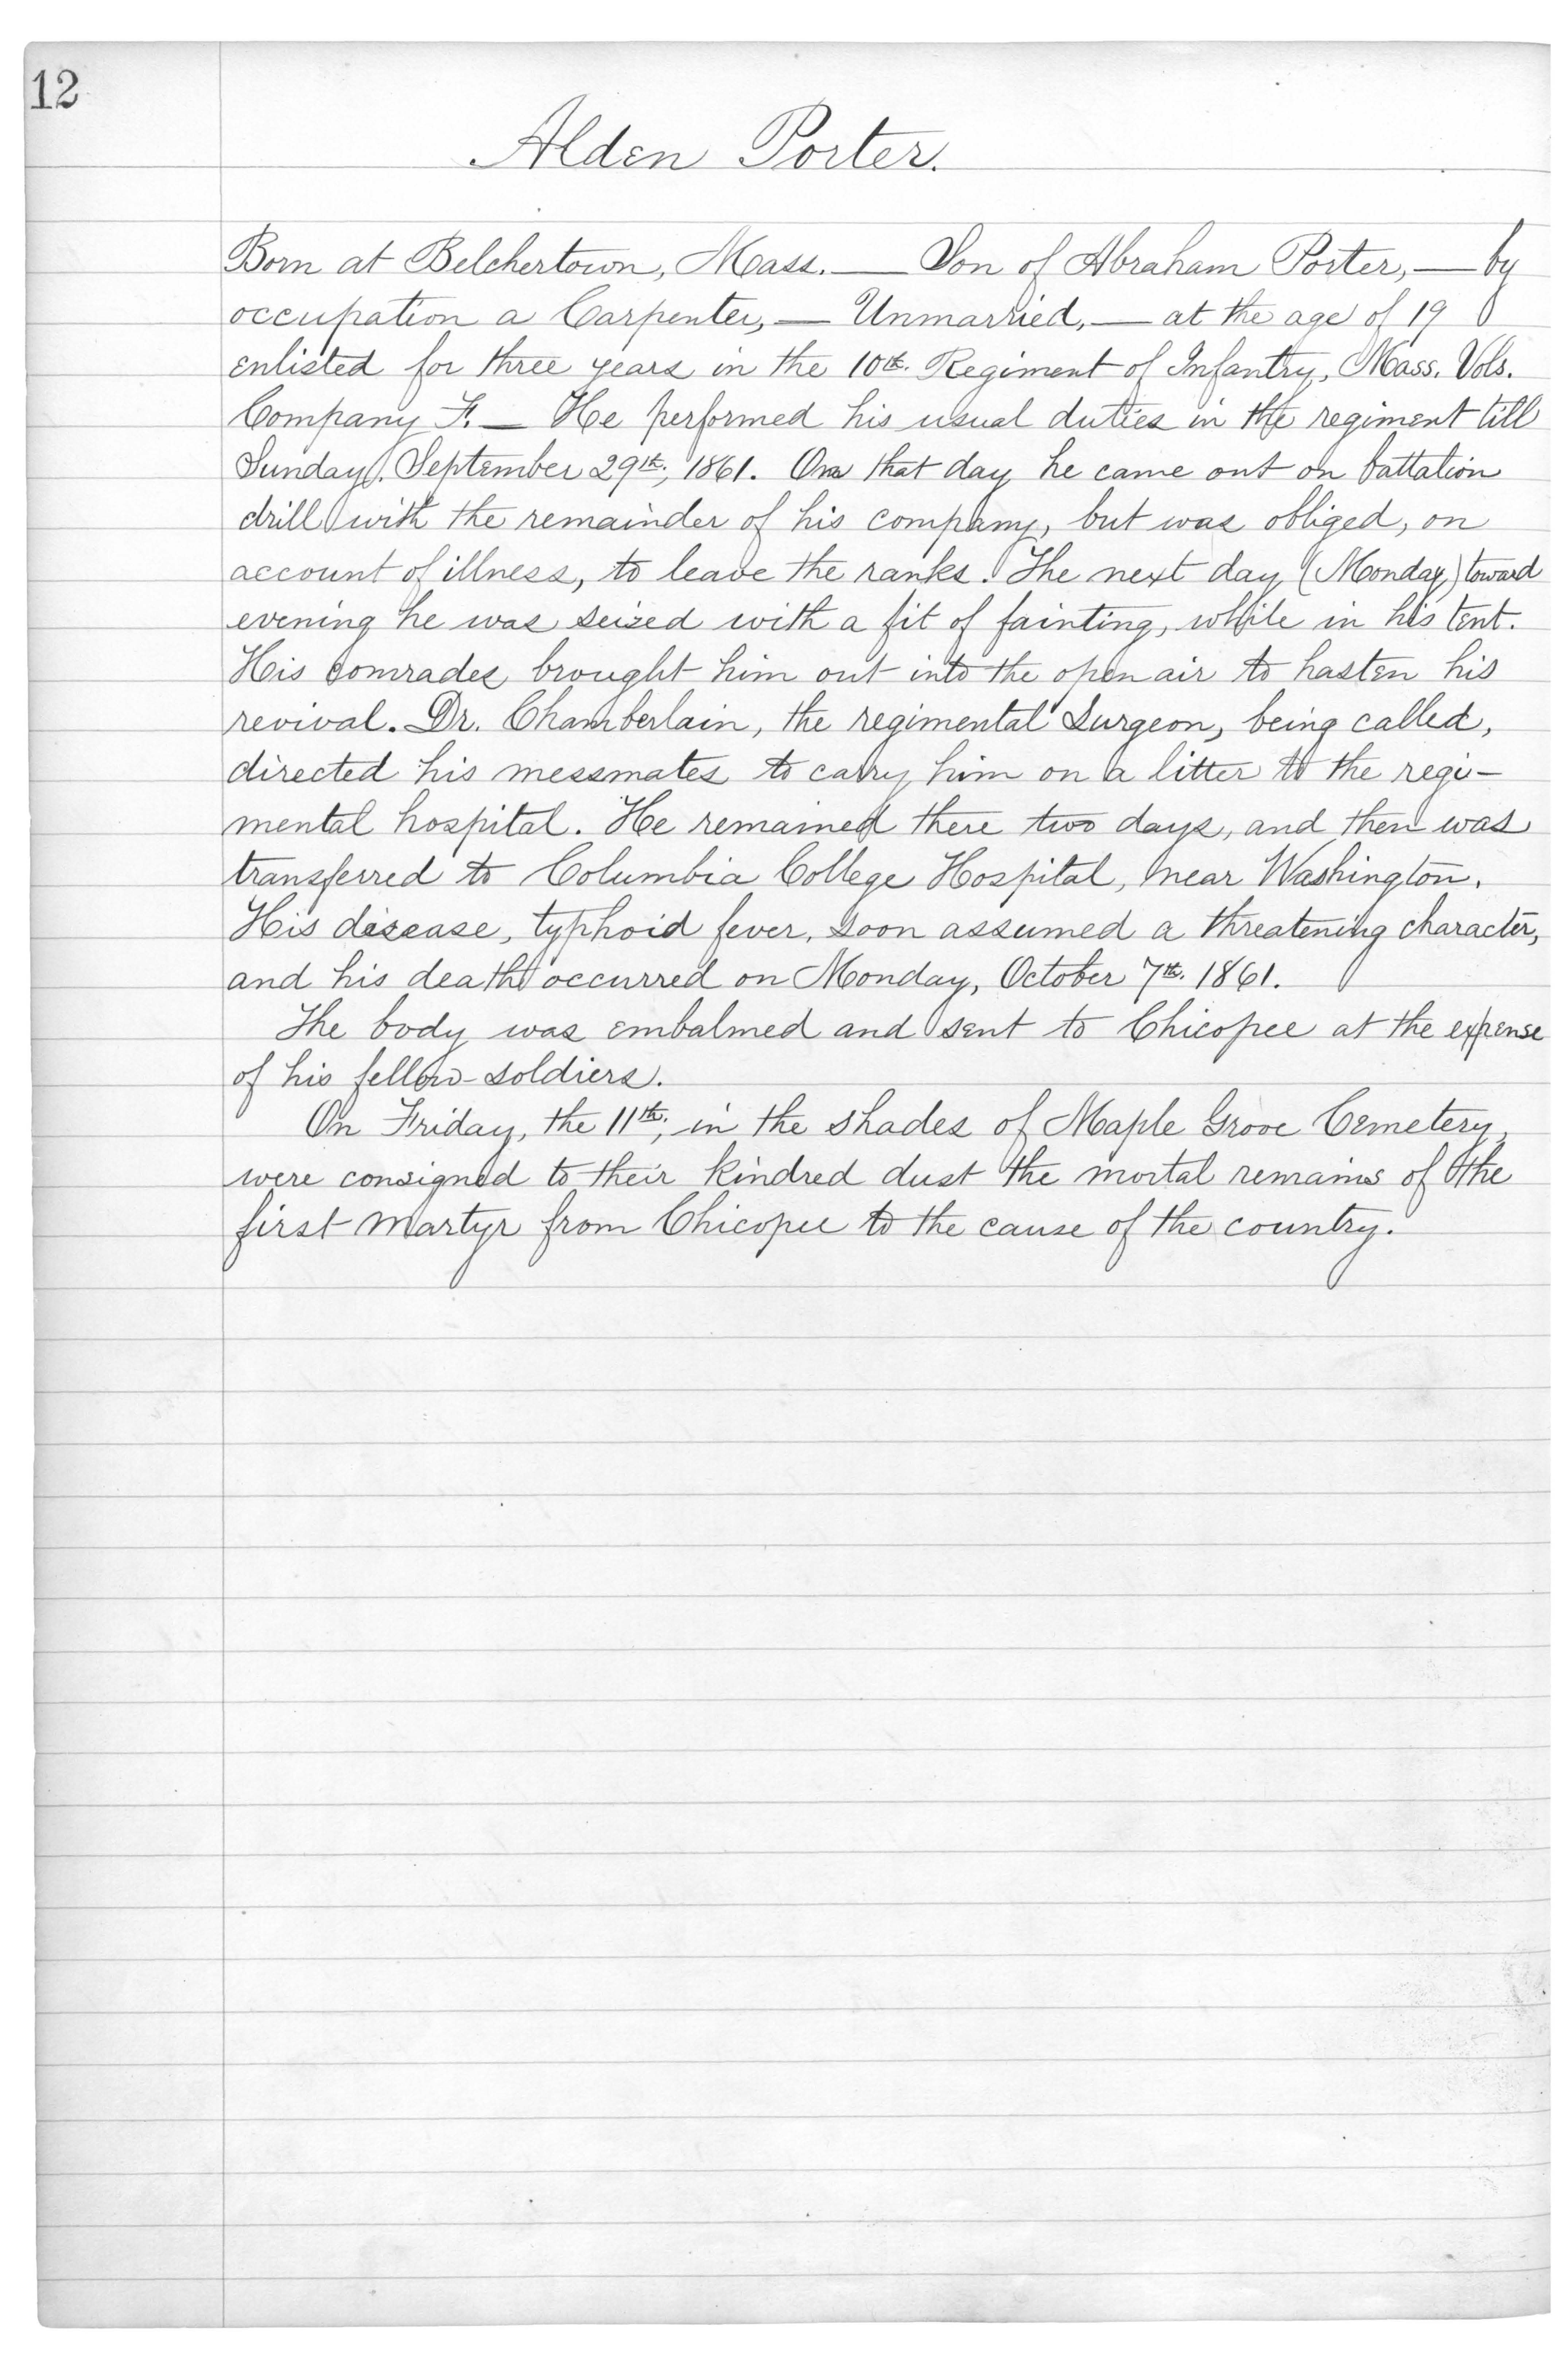 12
Alden Porter.
Born at Belchertown, Mass. — Son of Abraham Porter, — by
occupation a Carpenter, — Unmarried, — at the age of 19
enlisted for three years in the 10th. Regiment of Infantry, Mass. Vols.
Company F. — He performed his usual duties in the regiment till
Sunday, September 29th, 1861. On that day he came out on battalion
drill with the remainder of his company, but was obliged, on
account of illness, to leave the ranks. The next day (Monday) toward
evening he was seized with a fit of fainting, while in his tent.
His comrades brought him out into the open air to hasten his
revival. Dr. Chamberlain, the regimental surgeon, being called,
directed his messmates to carry him on a litter to the regi-
mental hospital. He remained there two days, and then was
transferred to Columbia College Hospital, near Washington.
His disease, typhoid fever, soon assumed a threatening character,
and his death occurred on Monday, October 7th. 1861.
The body was embalmed and sent to Chicopee at the expense
of his fellow-soldiers.
On Friday, the 11th, in the shades of Maple Grove Cemetery,
were consigned to their kindred dust the mortal remains of the
first martyr from Chicopee to the cause of the country.